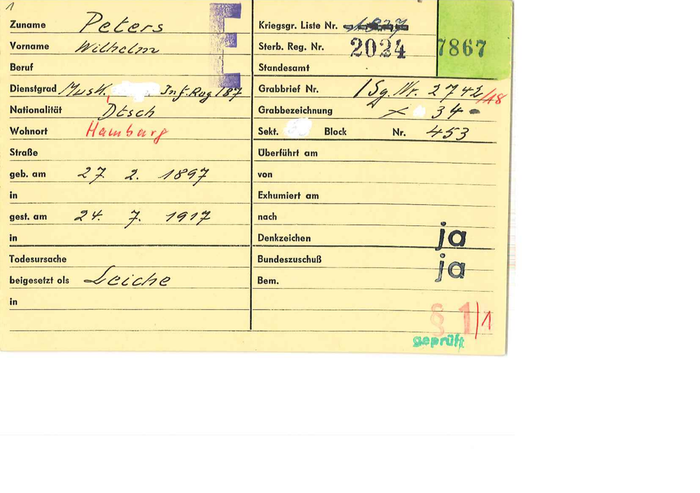 1
Zuname Peters
Vorname Wilhelm
Beruf
Dienstgrad Musk. Inf. Reg 187
Nationalität Dtsch
Wohnort Hamburg
Straße
geb. am 27. 2. 1897
in
gest. am 24. 7. 1917
in
Todesursache
beigesetzt als Leiche
in
E
Kriegsgr. Liste Nr.
Sterb. Reg. Nr. 2024 7867
Standesamt
Grabbrief Nr. 1 Sg. Nr. 2742/18
Grabbezeichnung 34
Sekt. Block Nr. 453
Überführt am
von
Exhumiert am
nach
Denkzeichen ja
Bundeszuschuß ja
Bem.
§ 1/1
geprüft